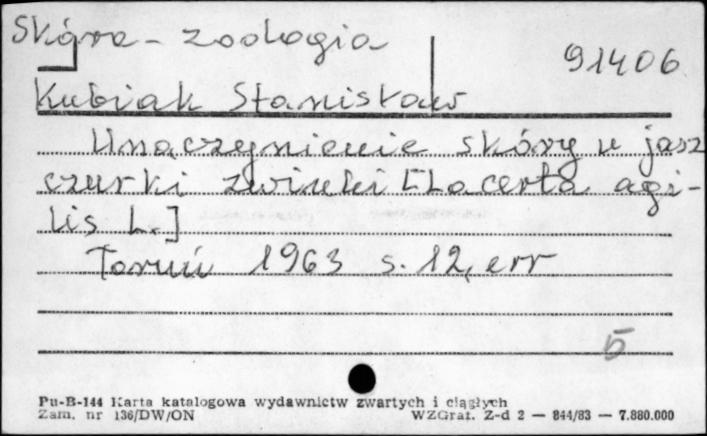 Skóra - zoologia
91406
Kubiak Stanisław
Unaczynienie skóry u jasz
czurki zwinki [Lacerta agi-
lis L.]
Toruń 1963 s. 12, err
5
Pu-B-144 Karta katalogowa wydawnictw zwartych i ciągłych
Zam. nr 136/DW/ON WZGraf. Z-d 2 — 844/83 — 7.880.000